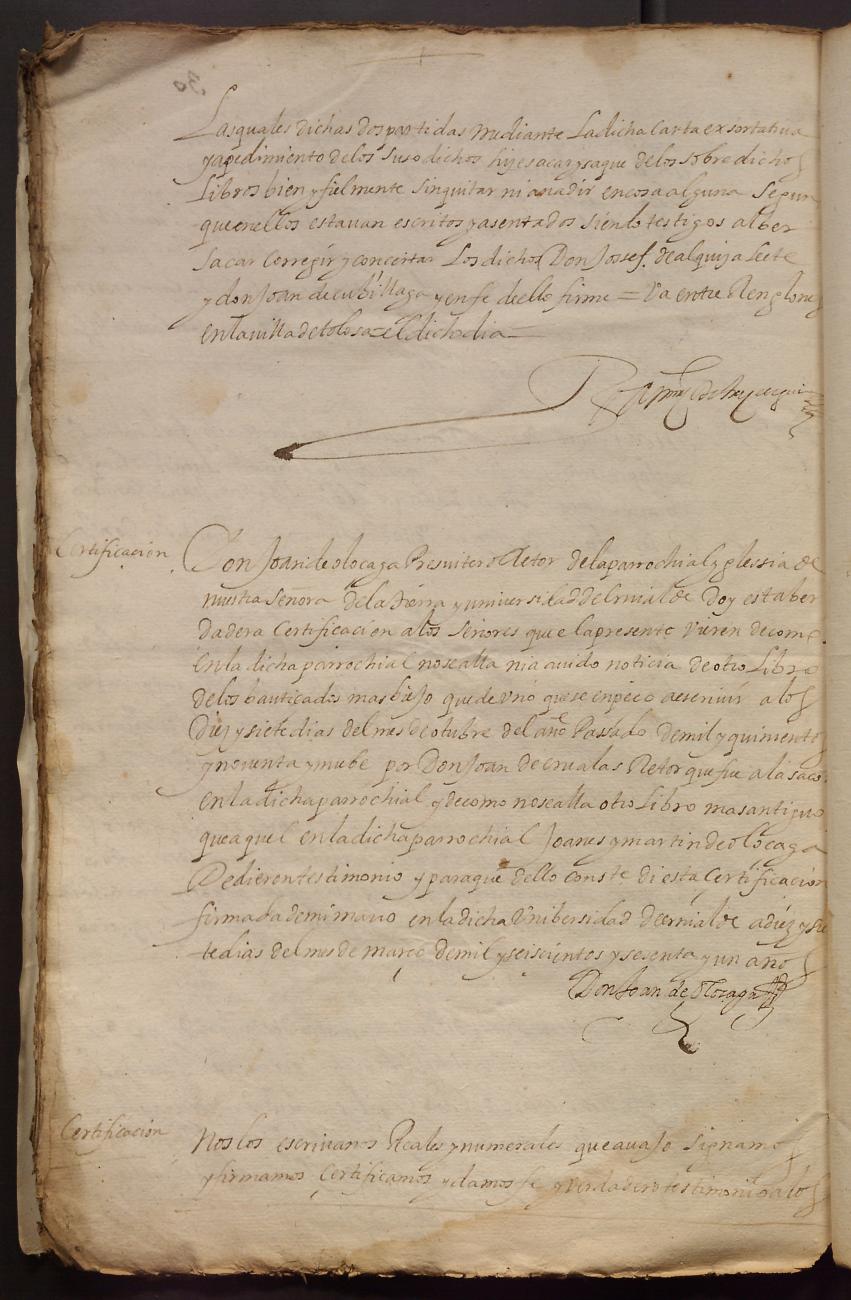 Las quales dichas dos partidas mediante La dicha Carta exsortatiua
y a pedimiento de los suso dichos hije sacar y saque de los sobre dichos
Libros bien y fielmente sin quitar ni anadir en cosa alguna Segun
que en ellos estauan escritos y asentados siendo testigos al ber
Sacar Corregir y concertar Los dichos Don Jossef. de alquiça
y don Joan de cubillaga y en fe de ello firme = Va entre Renglones
en la villa de tolosa = el dicho dia =
Certificacion
Don Joan de olocaga Presuitero Retor de la parrochial yglessia de
nuestra Senora de la Sierra y uniuersidad del ernialde Doy esta ber
dadera Certificacion a los Señores que la presente Vieren de como
en la dicha parrochial no se alla ni a auido noticia de otro Libro
de los bauticados mas biejo que de Uno que se enpeco a escriuir a los
Diez y siete dias del mes de otubre del año Passado de mil y quinientos
y nouenta y nuebe por Don Joan de erualas Retor que fue a la saco
en la dicha parrochial y de como no se alla otro Libro mas antiguo
que aquel en la dicha parrochial Joanes y martin de olocaga
Pedieron testimonio y para que dello conste di esta Certificacion
firmada de mi mano en la dicha Unibersidad de ernialde a diez y sie
te dias del mes de março de mil y seiscientos y sesenta y un años
Don Joan de Olozaga
Certificacion
Nos los escriuanos Reales y numerales que auajo Signamos
y firmamos Certificamos y damos fe y verdadero testimonio a los